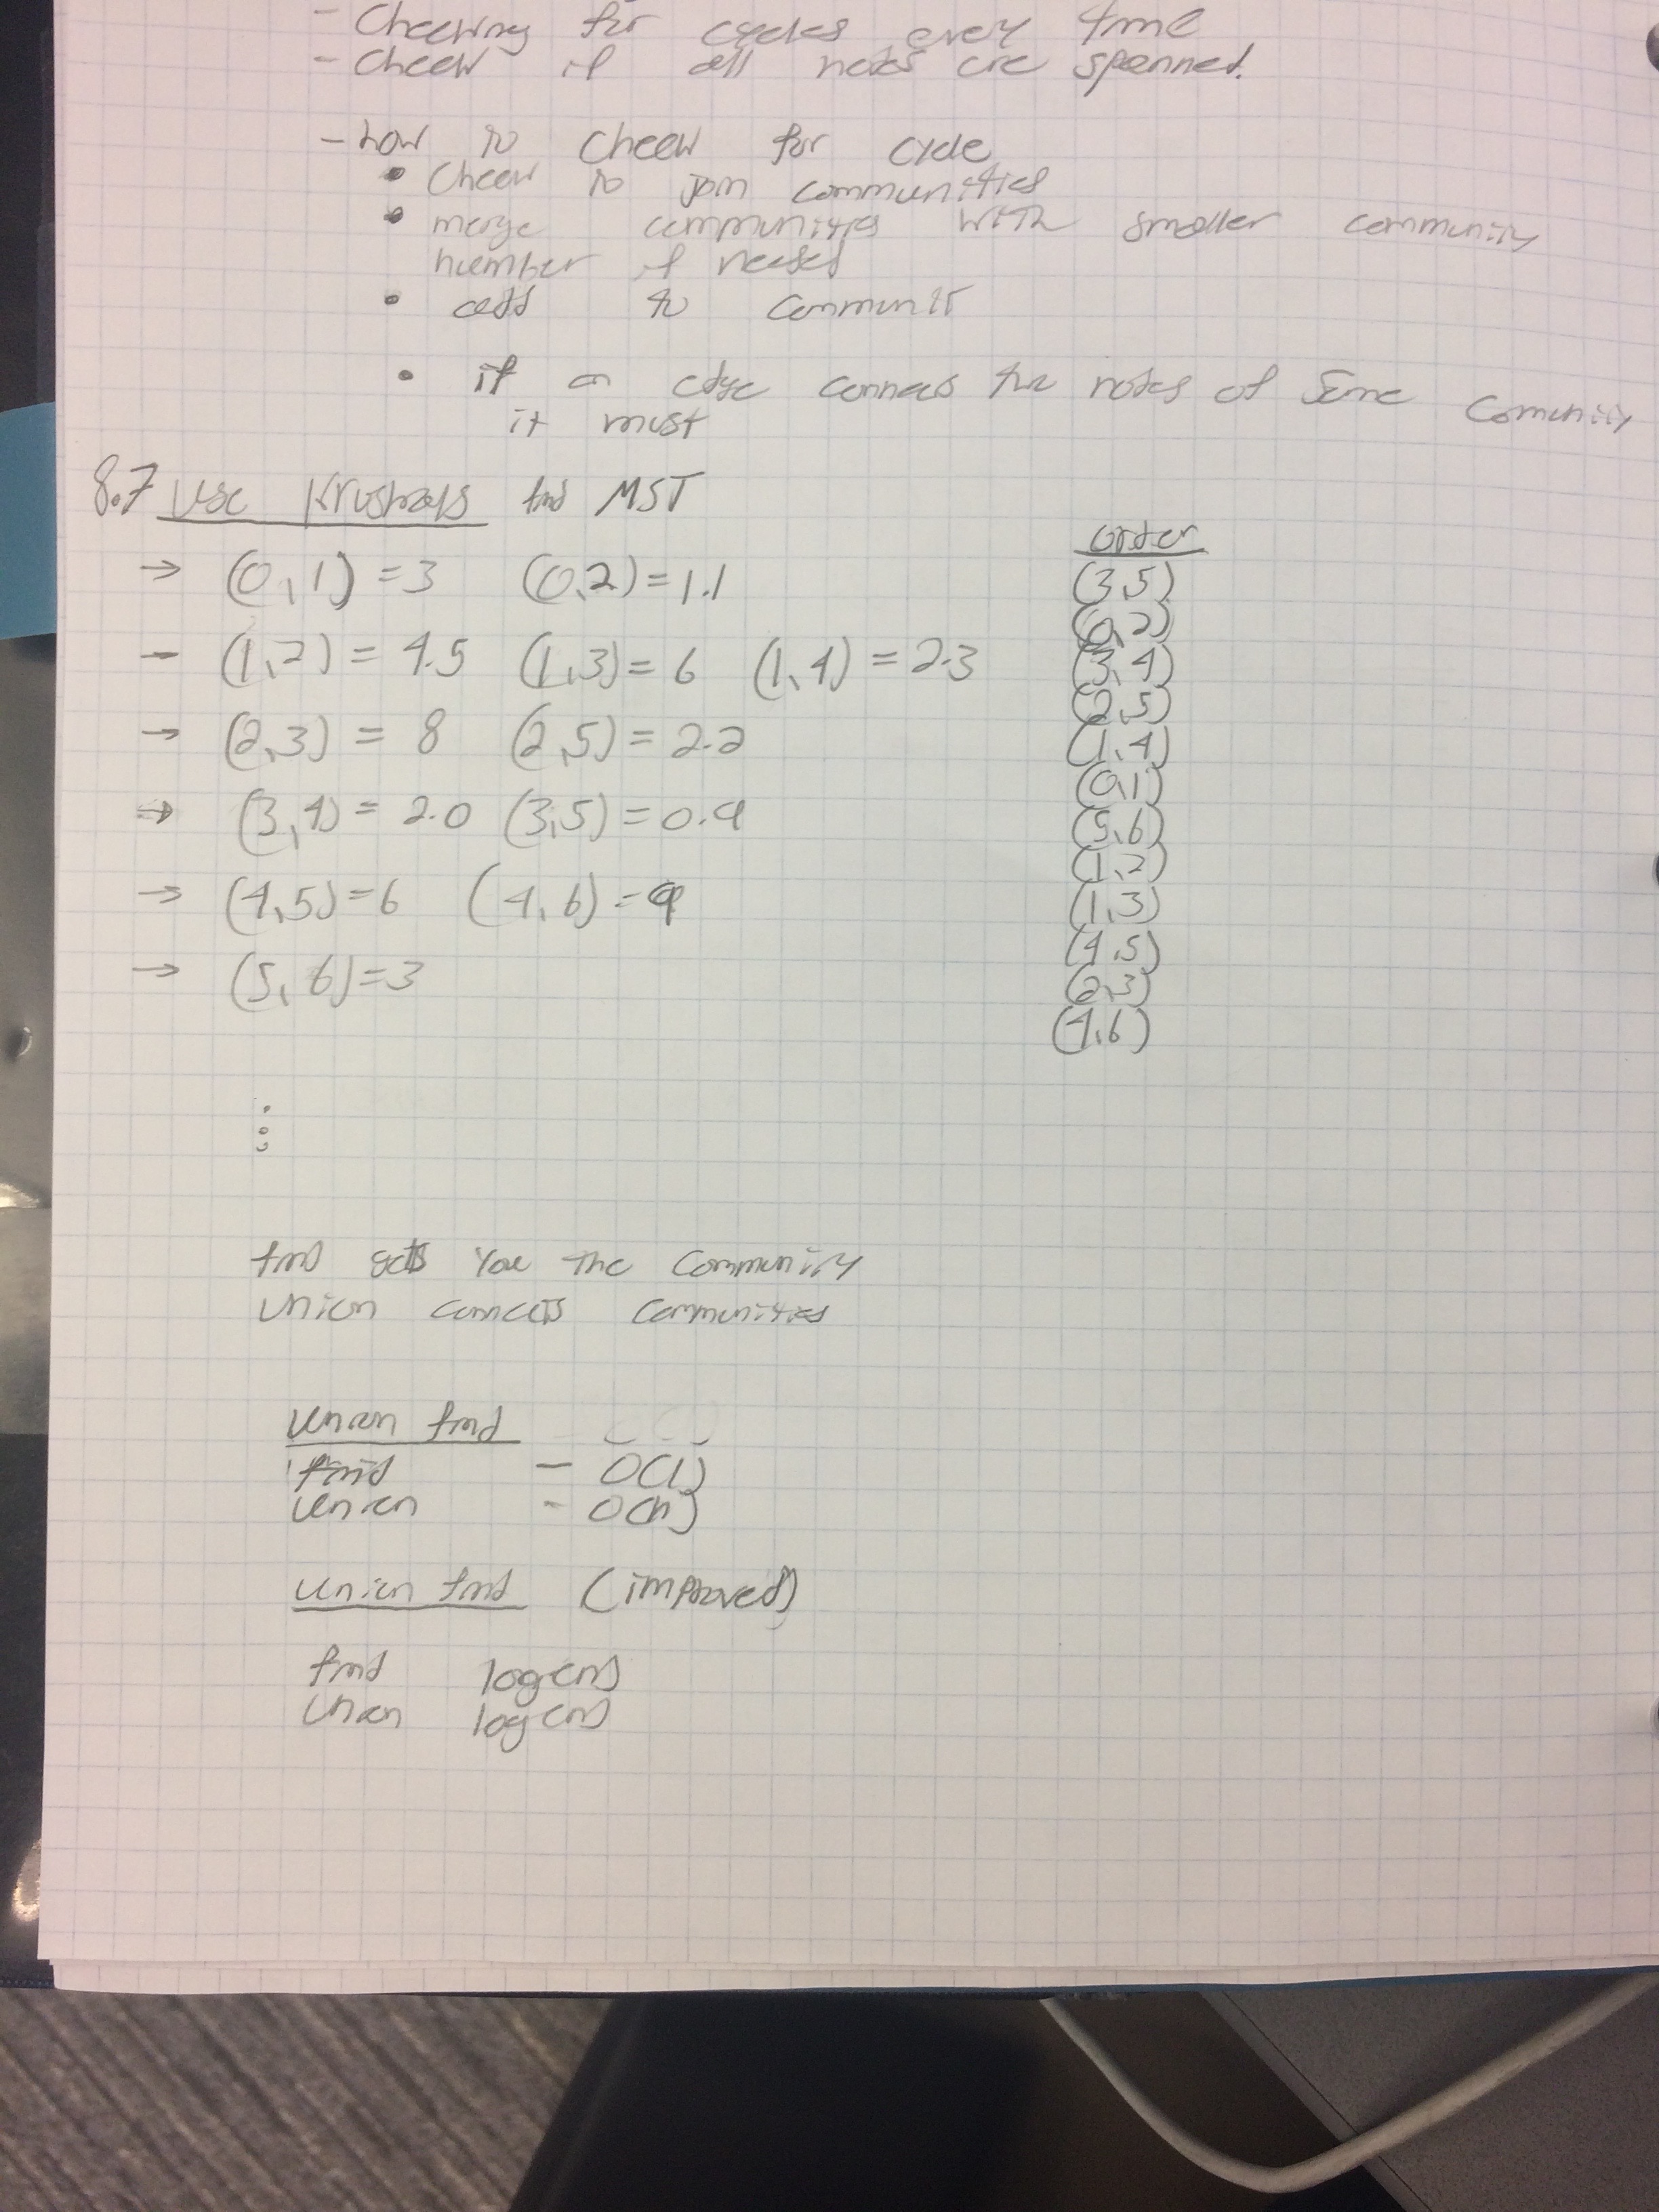 - Checking for cycles every time
- Check if all nodes are spanned.
- how to check for cycle
• Check to join communities
• merge communities with smaller community
number if needed
• add to communit
• if an edge connects two nodes of same comunity
it must
8.7 use Kruskals find MST
→ (0,1) = 3 (0,2) = 1.1
- (1,2) = 4.5 (1,3) = 6 (1,4) = 2.3
→ (2,3) = 8 (2,5) = 2.2
→ (3,4) = 2.0 (3,5) = 0.9
→ (4,5) = 6 (4,6) = 9
→ (5,6) = 3
order
(3,5)
(0,2)
(3,4)
(2,5)
(1,4)
(0,1)
(5,6)
(1,2)
(1,3)
(4,5)
(2,3)
(4,6)
find gets you the community
union connects communities
union find
find - O(1)
union - O(n)
union find (improved)
find log(n)
union log(n)